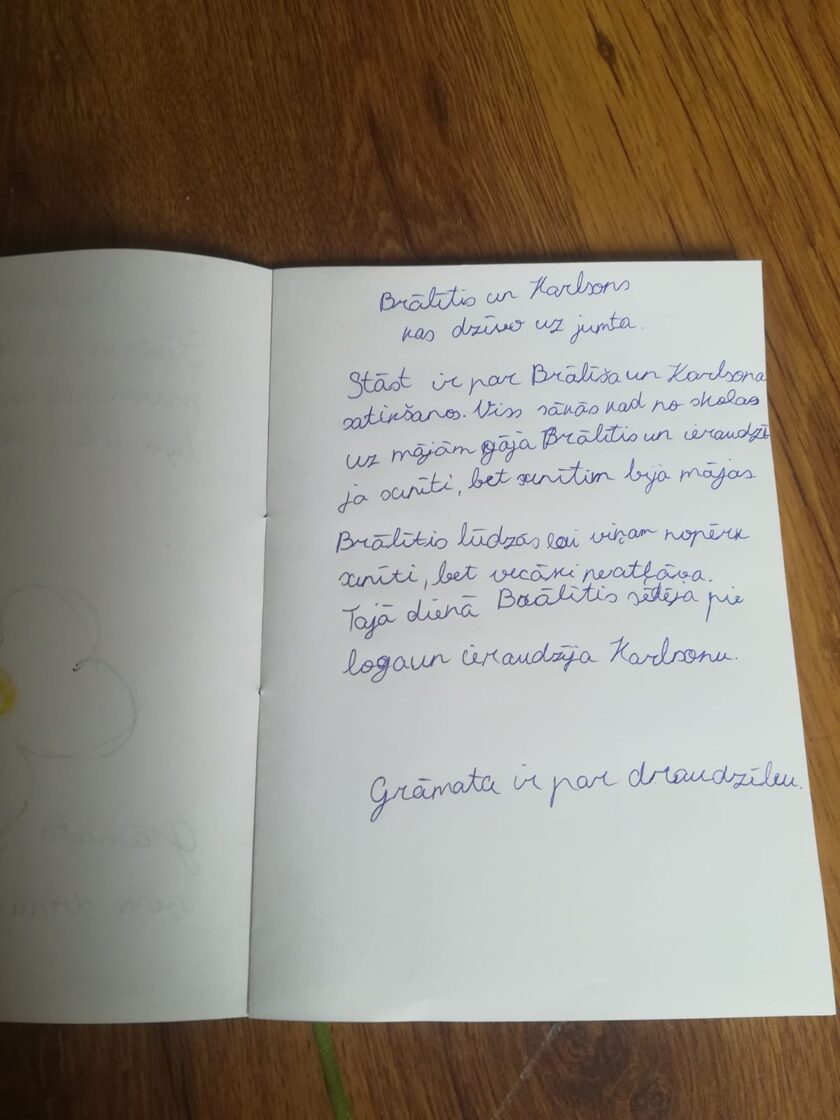 Brālītis un Karlsons
kas dzīvo uz jumta.
Stāst ir par Brālīša un Karlsona
satikšanos. Viss sākās kad no skolas
uz mājām gāja Brālītis un ieraudzī
ja sunīti, bet sunītim bija mājas
Brālītis lūdzās lai viņam nopērk
sunīti, bet vecāki neatļāva.
Tajā dienā Brālītis sēdēja pie
loga un ieraudzīja Karlsonu.
Grāmata ir par draudzību.